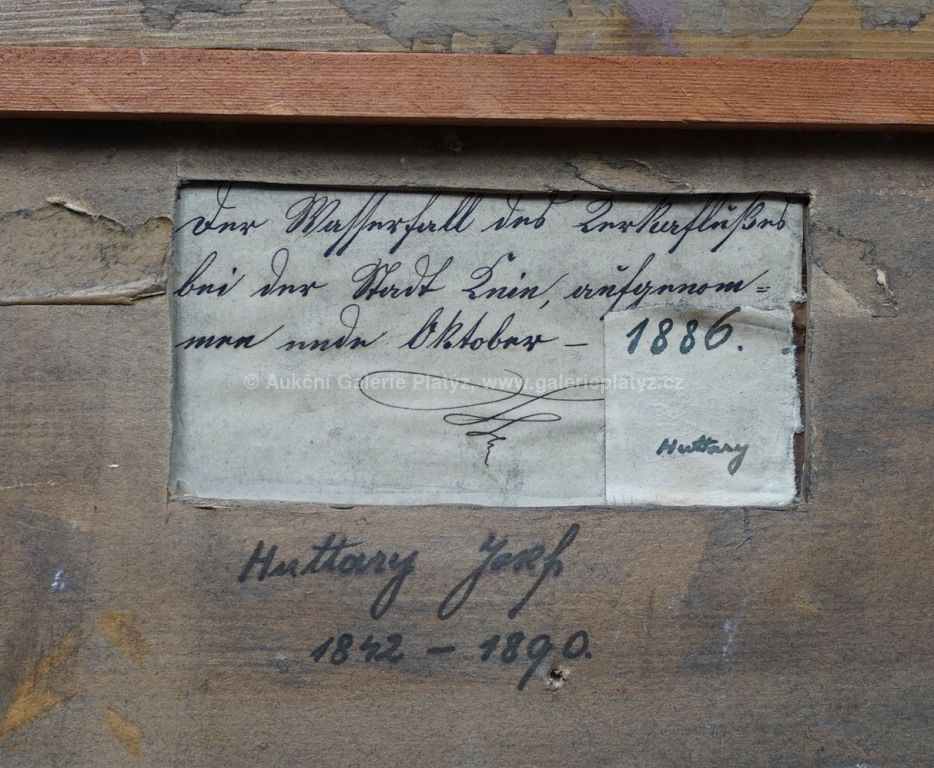 Der Wasserfall des Zerkaflußes
bei der Stadt Knin, aufgenom=
men ende Oktober – 1886.
© Aukční Galerie Platýz, www.galerieplatyz.cz
Huttary
Huttary Josef
1842 – 1890.